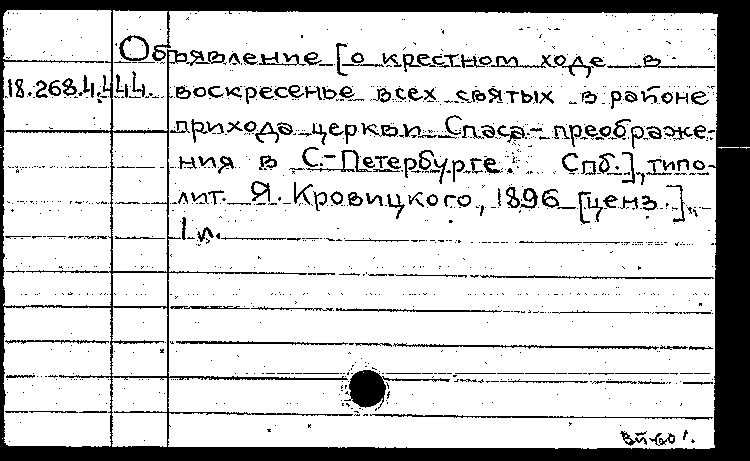 Объявление [о крестном ходе в
18.268.4.444. воскресенье всех святых в районе
прихода церкви Спаса-преображе-
ния в С.-Петербурге. Спб.], типо-
лит. Я. Кровицкого, 1896 [ценз.].
1 л.